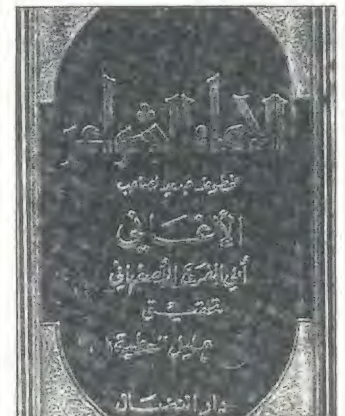 الإماء الشواعر
مخطوط جديد لصاحب
الأغاني
أبي الفرج الأصفهاني
تحقيق
جليل العطية
دار النضال